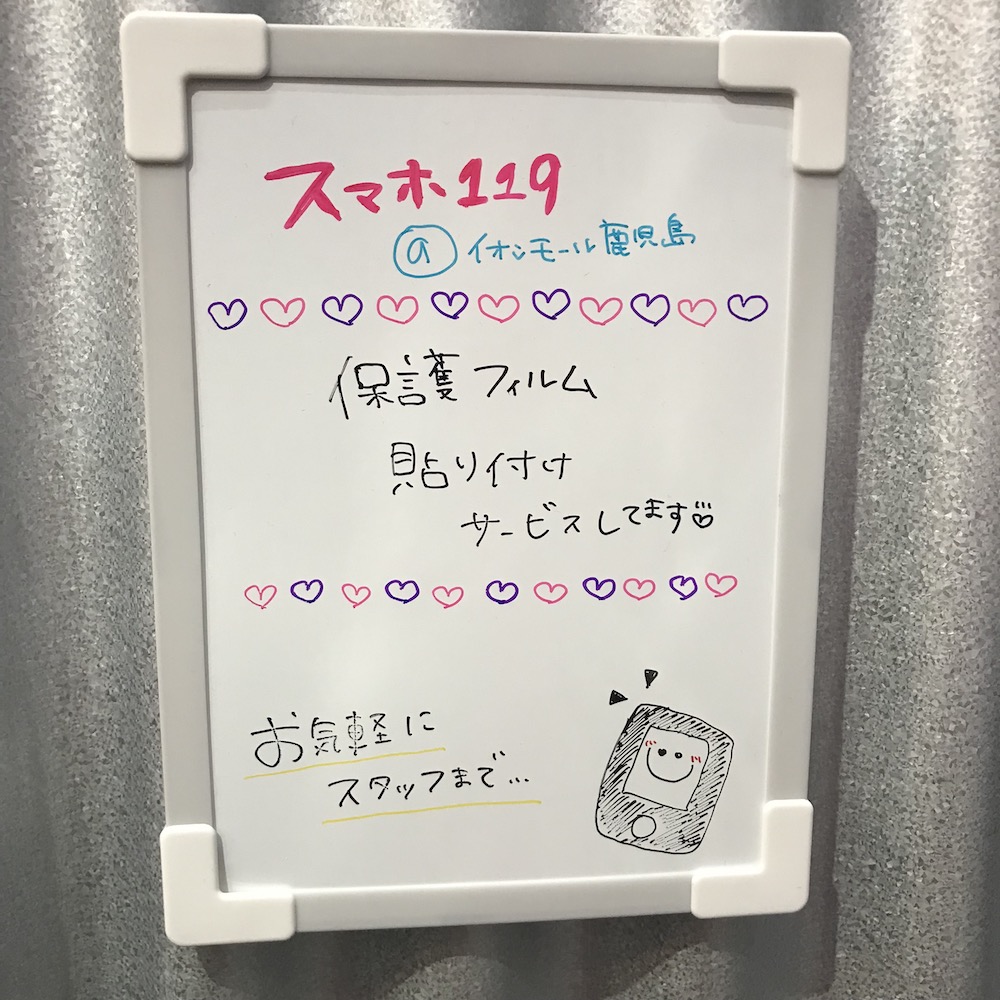 スマホ119
@イオンモール鹿児島
保護フィルム
貼り付け
サービスしてます
お気軽に
スタッフまで...